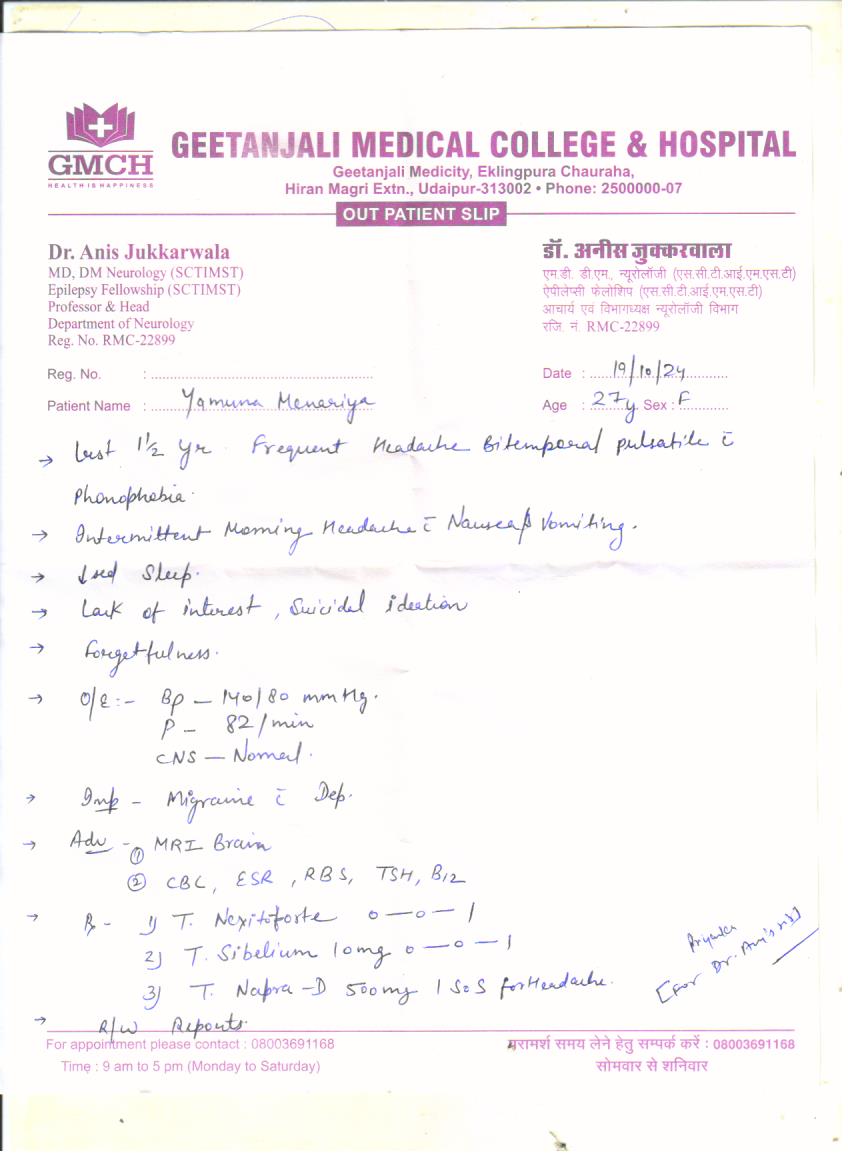 GMCH
HEALTH IS HAPPINESS
GEETANJALI MEDICAL COLLEGE & HOSPITAL
Geetanjali Medicity, Eklingpura Chauraha,
Hiran Magri Extn., Udaipur-313002 • Phone: 2500000-07
OUT PATIENT SLIP
Dr. Anis Jukkarwala
MD, DM Neurology (SCTIMST)
Epilepsy Fellowship (SCTIMST)
Professor & Head
Department of Neurology
Reg. No. RMC-22899
डॉ. अनीस जुक्करवाला
एम.डी. डी.एम., न्यूरोलॉजी (एस.सी.टी.आई.एम.एस.टी)
ऐपीलेप्सी फेलोशिप (एस.सी.टी.आई.एम.एस.टी)
आचार्य एवं विभागध्यक्ष न्यूरोलॉजी विभाग
रजि. नं. RMC-22899
Reg. No. :
Date : 19/10/24
Patient Name : Yamuna Menariya
Age : 27y Sex : F
→ Last 1½ yr. Frequent Headache Bitemporal pulsatile c̄
Phonophobia.
→ Intermittent Morning Headache c̄ Nausea/ Vomiting.
→ ↓sed Sleep.
→ Lack of interest, Suicidal ideation
→ Forgetfulness.
→ O/E:- BP – 140/80 mmHg.
P – 82/min
CNS – Normal.
→ Imp – Migraine c̄ Dep.
→ Adv – ① MRI Brain
② CBC, ESR, RBS, TSH, B12
→ Rx - 1) T. Nexitoforte 0—0—1
2) T. Sibelium 10mg 0—0—1
3) T. Napra-D 500mg 1 SOS for Headache.
[For Dr. Anis
→ R/W Reports.
For appointment please contact : 08003691168
Time : 9 am to 5 pm (Monday to Saturday)
परामर्श समय लेने हेतु सम्पर्क करें : 08003691168
सोमवार से शनिवार